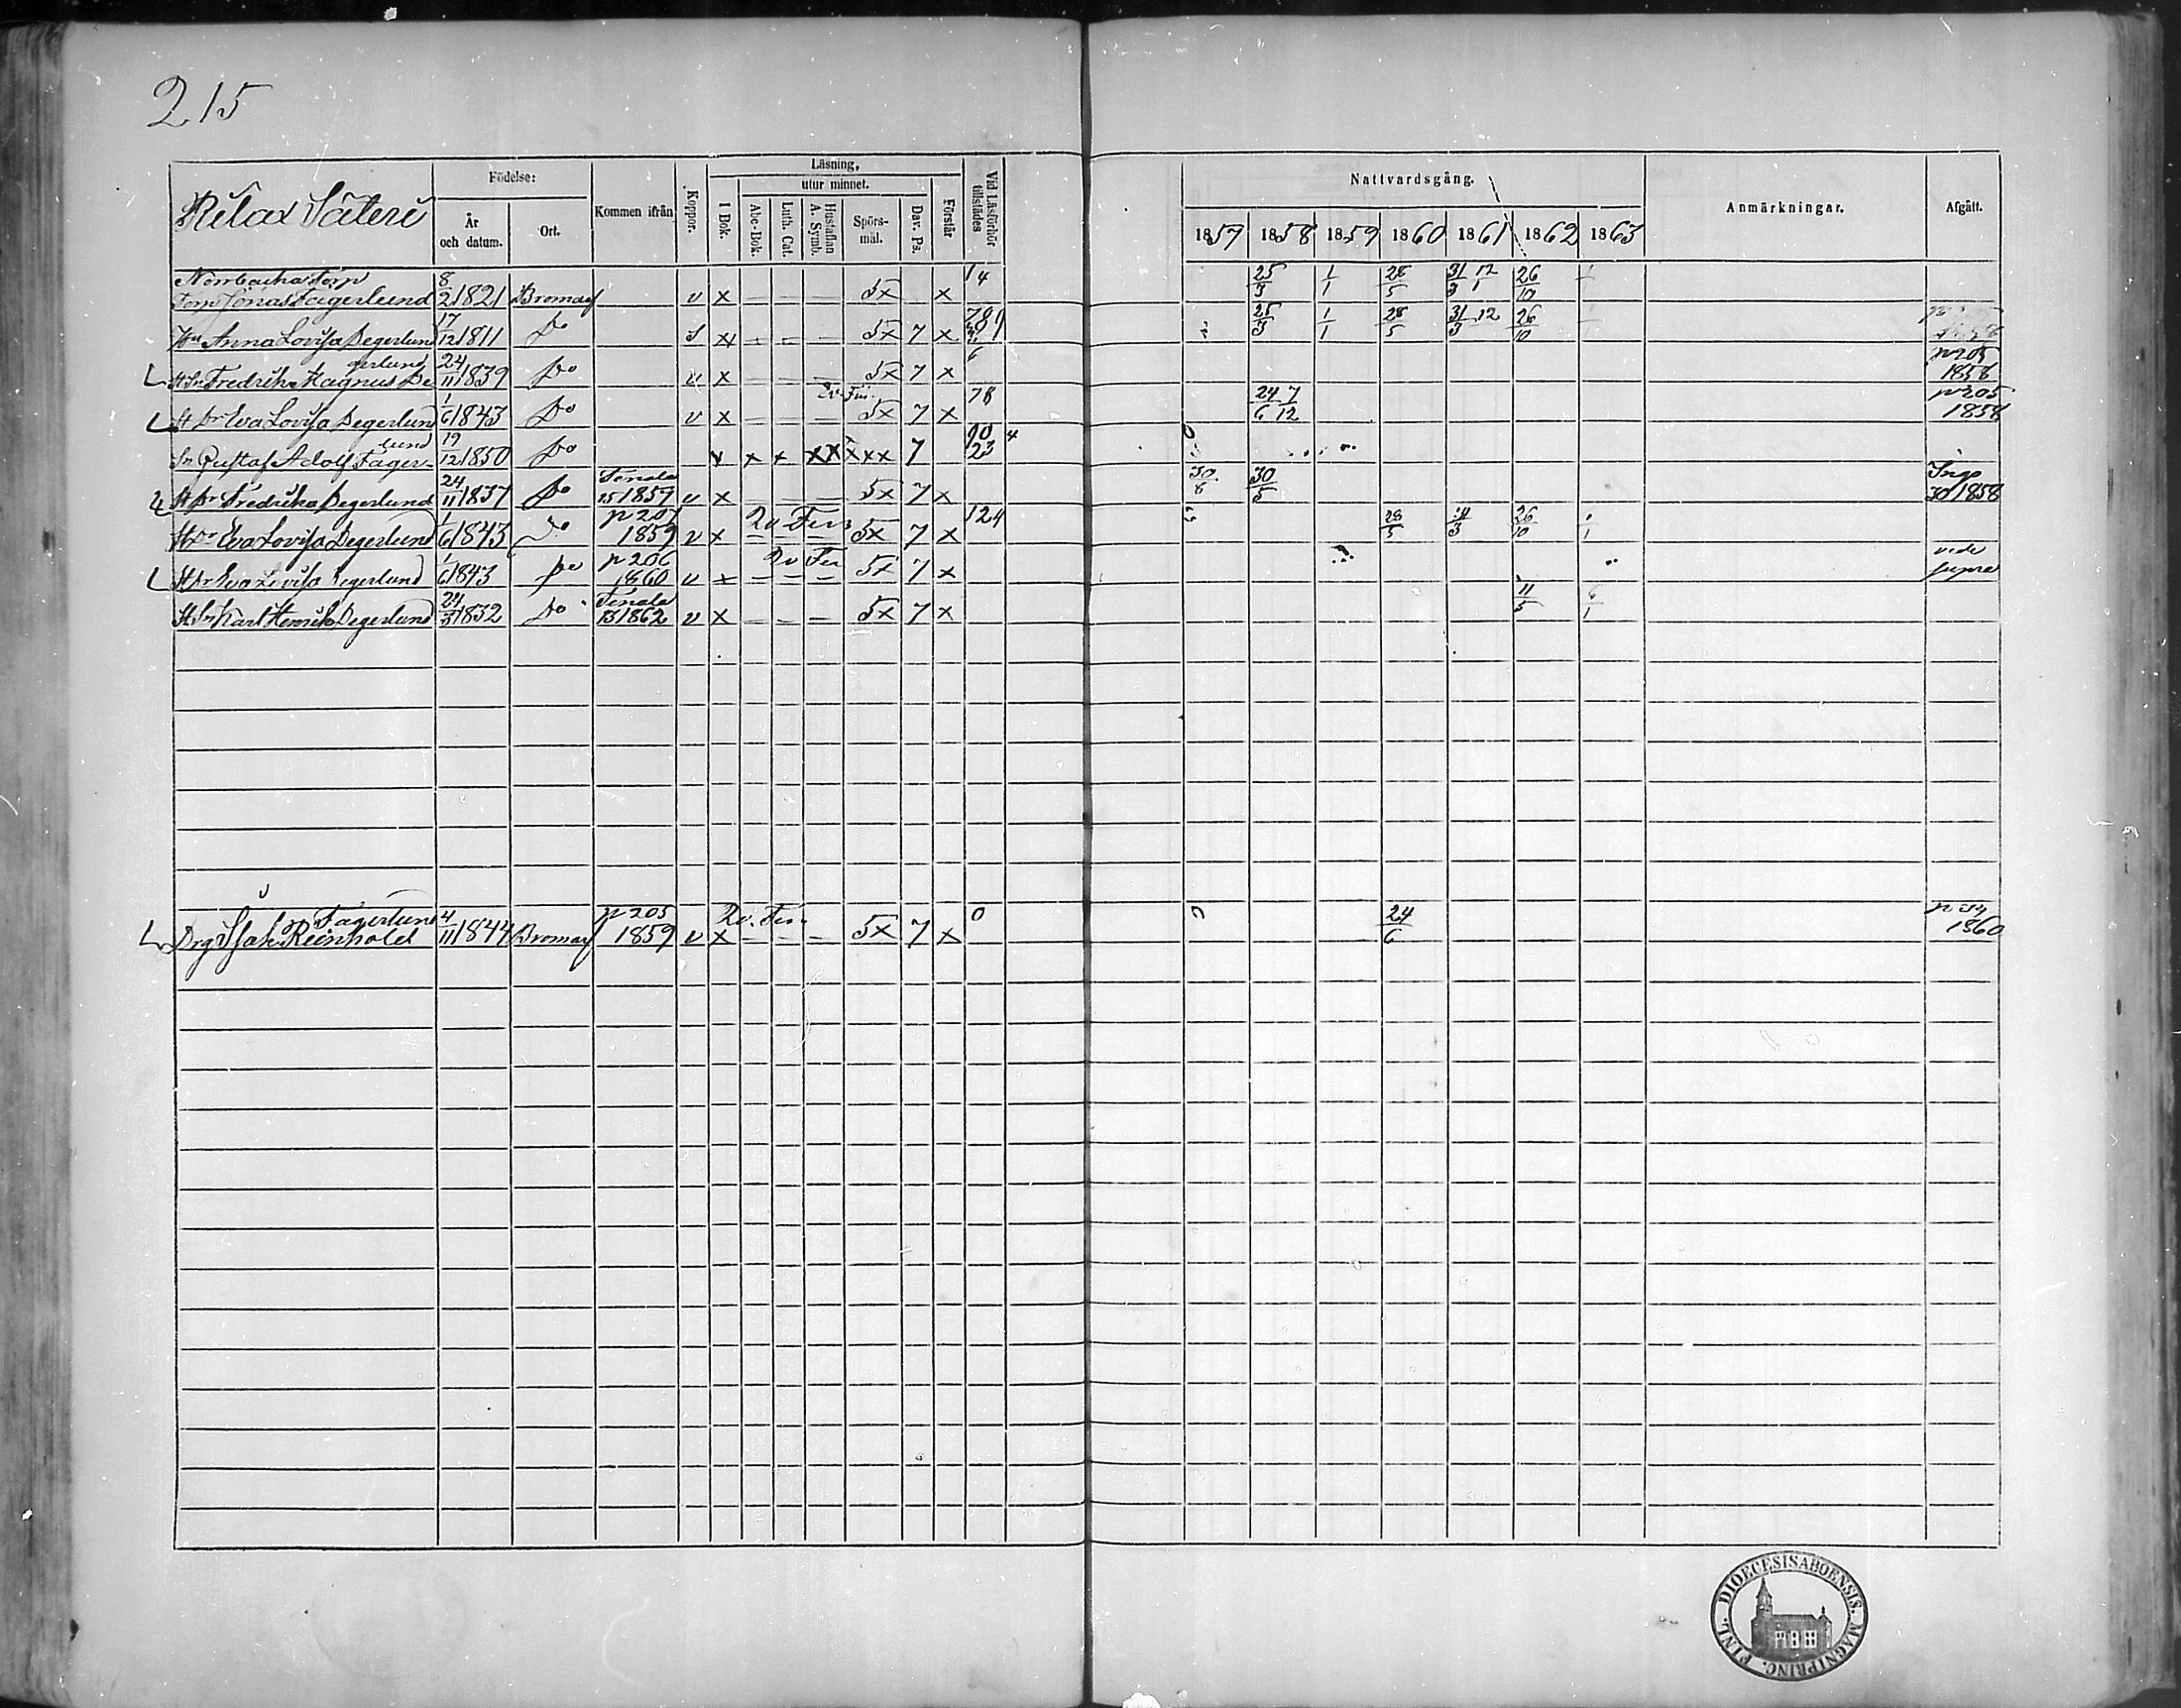 215
Rilax Säteri
Födelse:
År och datum.
Ort.
Kommen ifrån
Koppor.
Läsning,
I Bok.
utur minnet.
Abc-Bok.
Luth. Cat.
Hustaflan A. Symb.
Spörs-mål.
Dav. Ps.
Förstår
Vid Läsförhör tillstädes
Nattvardsgång.
1857 1858 1859 1860 1861 1862 1863
Anmärkningar.
Afgått.
Torp
Torp Jonas Fagerlund 8/2 1821 Bromarf v x — — — 5x x 14 25/3 1/1 28/5 31/3 12/1 26/10
Hu Anna Lovisa Degerlund 17/12 1811 Do S x — — — 5x 7 x 25/3 1/1 28/5 31/3 12 26/10
St Sn Fredrik Magnus Degerlund 24/11 1839 Do v x — — — 5x 7 x 6 p 205 1858
St Dr Eva Lovisa Degerlund 1/6 1843 Do v x — — — 5x 7 x 78 24/6 7/12 p 205 1858
Sn Gustaf Adolf Fagerlund 19/12 1850 Do x x x xx xxx 7 23 4
St Dr Fredrika Degerlund 24/11 1837 Do Tenala 15 1857 v x — — — 5x 7 x 30/8 30/5 Ingo 30 1858
St Dr Eva Lovisa Degerlund 1/6 1843 Do p 207 1859 v x — — — 5x 7 x 124 28/5 26/10
St Dr Eva Lovisa Degerlund 1/6 1843 Do p 206 1860 v x — — — 5x 7 x vide supra
St Sn Karl Henrik Degerlund 24/3 1832 Do Tenala 13 1862 v x — — — 5x 7 x 11/5 6/1
Drg Isak Reinhold Fagerlund 4/11 1844 Bromarf p 205 1859 v x — — — 5x 7 x 0 24/6 1860
DIOECESIS ABOENSIS. MAGNI PRINC. FINL.